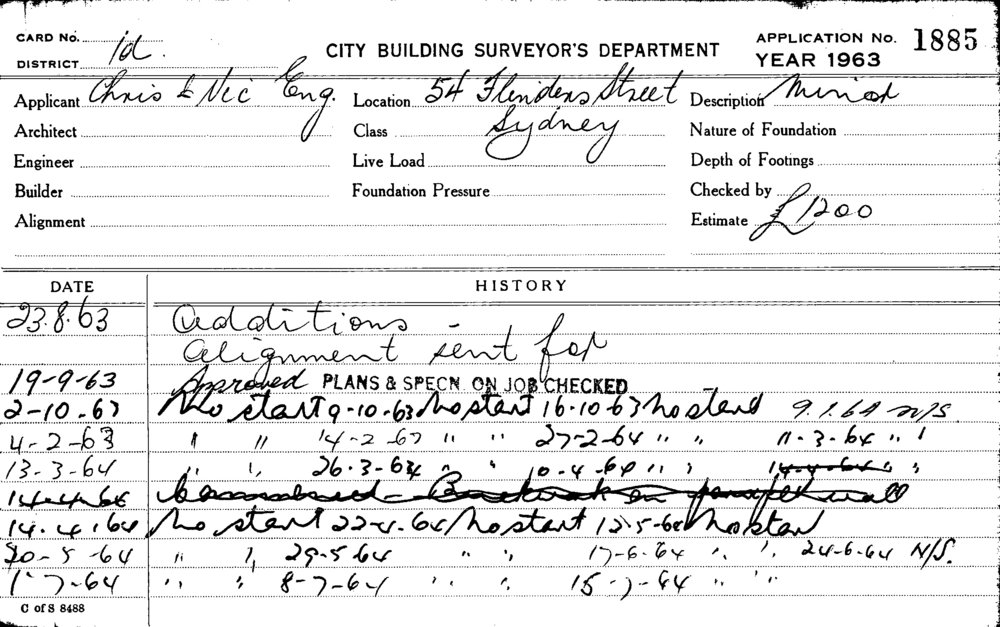 CARD No. id.
DISTRICT
CITY BUILDING SURVEYOR'S DEPARTMENT
APPLICATION No. 1885
YEAR 1963
Applicant Chris & Vic Eng. Location 54 Flinders Street Description Minor
Architect Class Sydney Nature of Foundation
Engineer Live Load Depth of Footings
Builder Foundation Pressure Checked by
Alignment Estimate £1200
DATE HISTORY
23.8.63 Additions -
Alignment sent for
19-9-63 Approved PLANS & SPECN. ON JOB CHECKED
2-10-63 No start 9-10-63 No start 16-10-63 No start 9.1.64 N/S
4-2-63 " " 14-2-67 " " 27-2-64 " " 11-3-64 " "
13-3-64 " " 26-3-64 " " 10-4-64 " " 14-4-64 " "
14-4-64 Commenced - Brickwork on parapet wall
14.4.64 No start 22-4.64 No start 12-5-64 No start
20-5-64 " " 29-5-64 " " 17-6-64 " " 24-6-64 N/S.
1-7-64 " " 8-7-64 " " 15-7-64 " "
C of S 8488